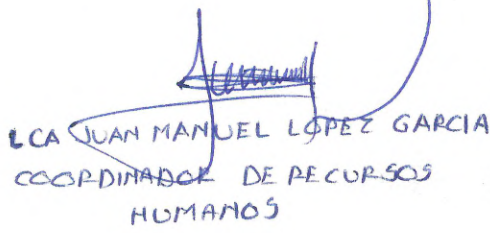 LCA JUAN MANUEL LOPEZ GARCIA
COORDINADOR DE RECURSOS
HUMANOS